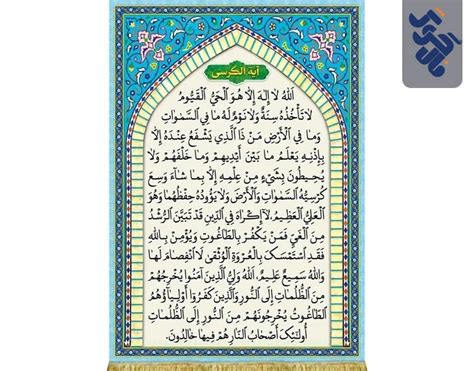 آیة الکرسی
اَللّٰهُ لَا إِلٰهَ إِلَّا هُوَ الْحَيُّ الْقَيُّومُ
لَا تَأْخُذُهُ سِنَةٌ وَلَا نَوْمٌ لَهُ مَا فِي السَّمٰوَاتِ
وَمَا فِي الْأَرْضِ مَنْ ذَا الَّذِي يَشْفَعُ عِنْدَهُ إِلَّا
بِإِذْنِهِ يَعْلَمُ مَا بَيْنَ أَيْدِيهِمْ وَمَا خَلْفَهُمْ وَلَا
يُحِيطُونَ بِشَيْءٍ مِنْ عِلْمِهِ إِلَّا بِمَا شَاءَ وَسِعَ
كُرْسِيُّهُ السَّمٰوَاتِ وَالْأَرْضَ وَلَا يَؤُودُهُ حِفْظُهُمَا وَهُوَ
الْعَلِيُّ الْعَظِيمُ، لَا إِكْرَاهَ فِي الدِّينِ قَدْ تَبَيَّنَ الرُّشْدُ
مِنَ الْغَيِّ فَمَنْ يَكْفُرْ بِالطَّاغُوتِ وَيُؤْمِنْ بِاللّٰهِ
فَقَدِ اسْتَمْسَكَ بِالْعُرْوَةِ الْوُثْقَىٰ لَا انْفِصَامَ لَهَا
وَاللّٰهُ سَمِيعٌ عَلِيمٌ، اَللّٰهُ وَلِيُّ الَّذِينَ آمَنُوا يُخْرِجُهُمْ
مِنَ الظُّلُمَاتِ إِلَى النُّورِ وَالَّذِينَ كَفَرُوا أَوْلِيَاؤُهُمُ
الطَّاغُوتُ يُخْرِجُونَهُمْ مِنَ النُّورِ إِلَى الظُّلُمَاتِ
أُولٰئِكَ أَصْحَابُ النَّارِ هُمْ فِيهَا خَالِدُونَ.